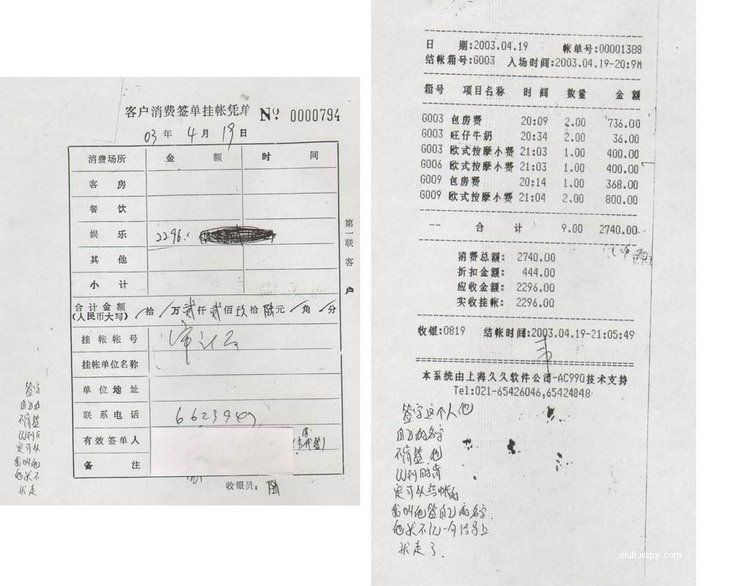 客户消费签单挂帐凭单 Nº 0000794
03 年 4 月 19 日
消费场所 金 额 时 间
客 房
餐 饮
娱 乐 2296.
其 他
小 计
合计金额
(人民币大写) 拾 万 贰 仟 贰 佰 玖 拾 陆 元 角 分
挂 帐 帐 号
挂帐单位名称
单 位 地 址
联 系 电 话
有效签单人
备 注
收银员:
第一联 客户
签字
日 期:2003.04.19 帐单号:00001388
结帐箱号:G003 入场时间:2003.04.19-20:9M
箱号 项目名称 时 间 数量 金 额
G003 包房费 20:09 2.00 736.00
G003 旺仔牛奶 20:34 2.00 36.00
G003 欧式按摩小费 21:03 1.00 400.00
G006 欧式按摩小费 21:03 1.00 400.00
G009 包房费 20:14 1.00 368.00
G009 欧式按摩小费 21:04 2.00 800.00
-- 合 计 9.00 2740.00
消费总额: 2740.00
折扣金额: 444.00
应收金额: 2296.00
实收挂帐: 2296.00
收银:0819 结帐时间:2003.04.19-21:05:49
本系统由上海久久软件公司-AC990技术支持
Tel:021-65426046,65424848
签字这个人他
自己的名字
不肯签 他
club.wzpy.com